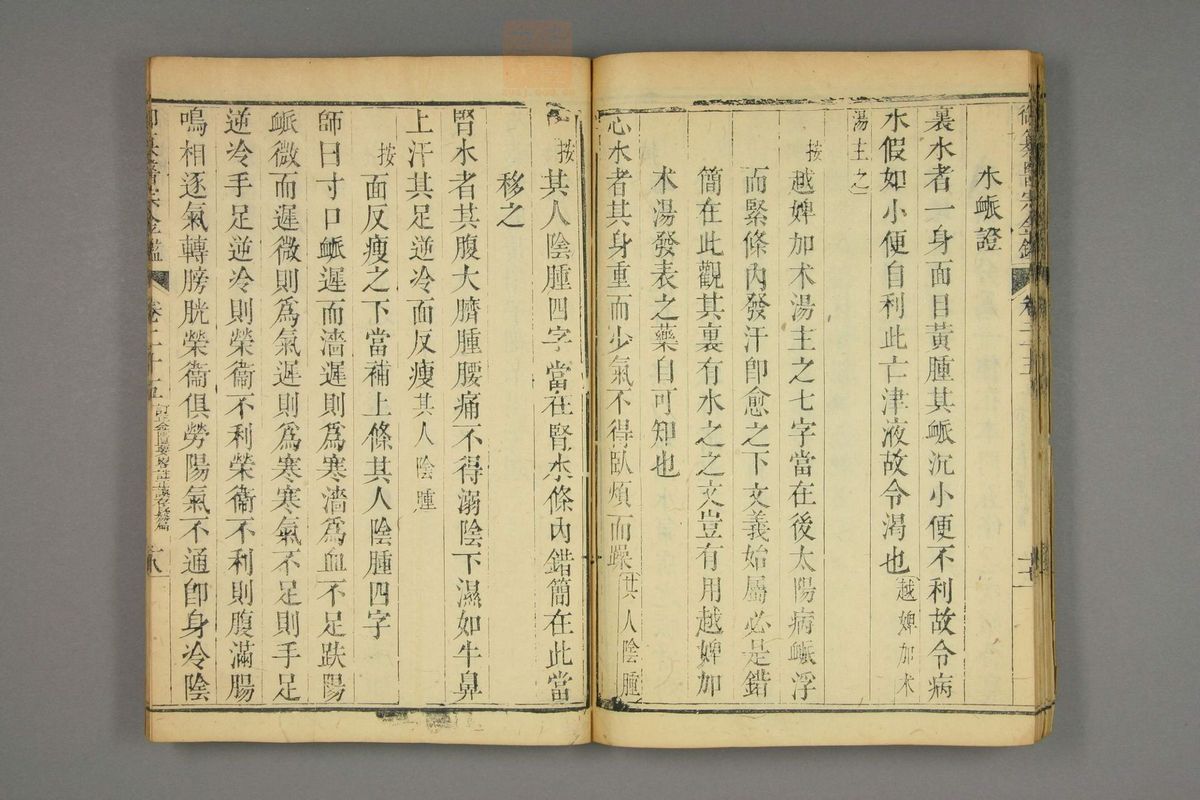 御纂醫宗金鑑 卷二十五
水䘑證
裏水者一身面目黃腫其䘑沉小便不利故令病
水假如小便自利此亡津液故令渴也越婢加术
湯主之
按越婢加术湯主之七字當在後太陽病䘑浮
而緊條內發汗卽愈之下文義始屬必是錯
簡在此觀其裏有水之之文豈有用越婢加
术湯發表之藥自可知也
心水者其身重而少氣不得臥煩而躁其人陰腫
按其人陰腫四字當在腎水條內錯簡在此當
移之
腎水者其腹大臍腫腰痛不得溺陰下濕如牛鼻
上汗其足逆冷面反瘦其人陰腫
按面反瘦之下當補上條其人陰腫四字
師曰寸口䘑遲而濇遲則爲寒濇爲血不足趺陽
䘑微而遲微則爲氣遲則爲寒寒氣不足則手足
逆冷手足逆冷則榮衞不利榮衞不利則腹滿腸
鳴相逐氣轉膀胱榮衞俱勞陽氣不通卽身冷陰
醫宗金鑑 卷二十五